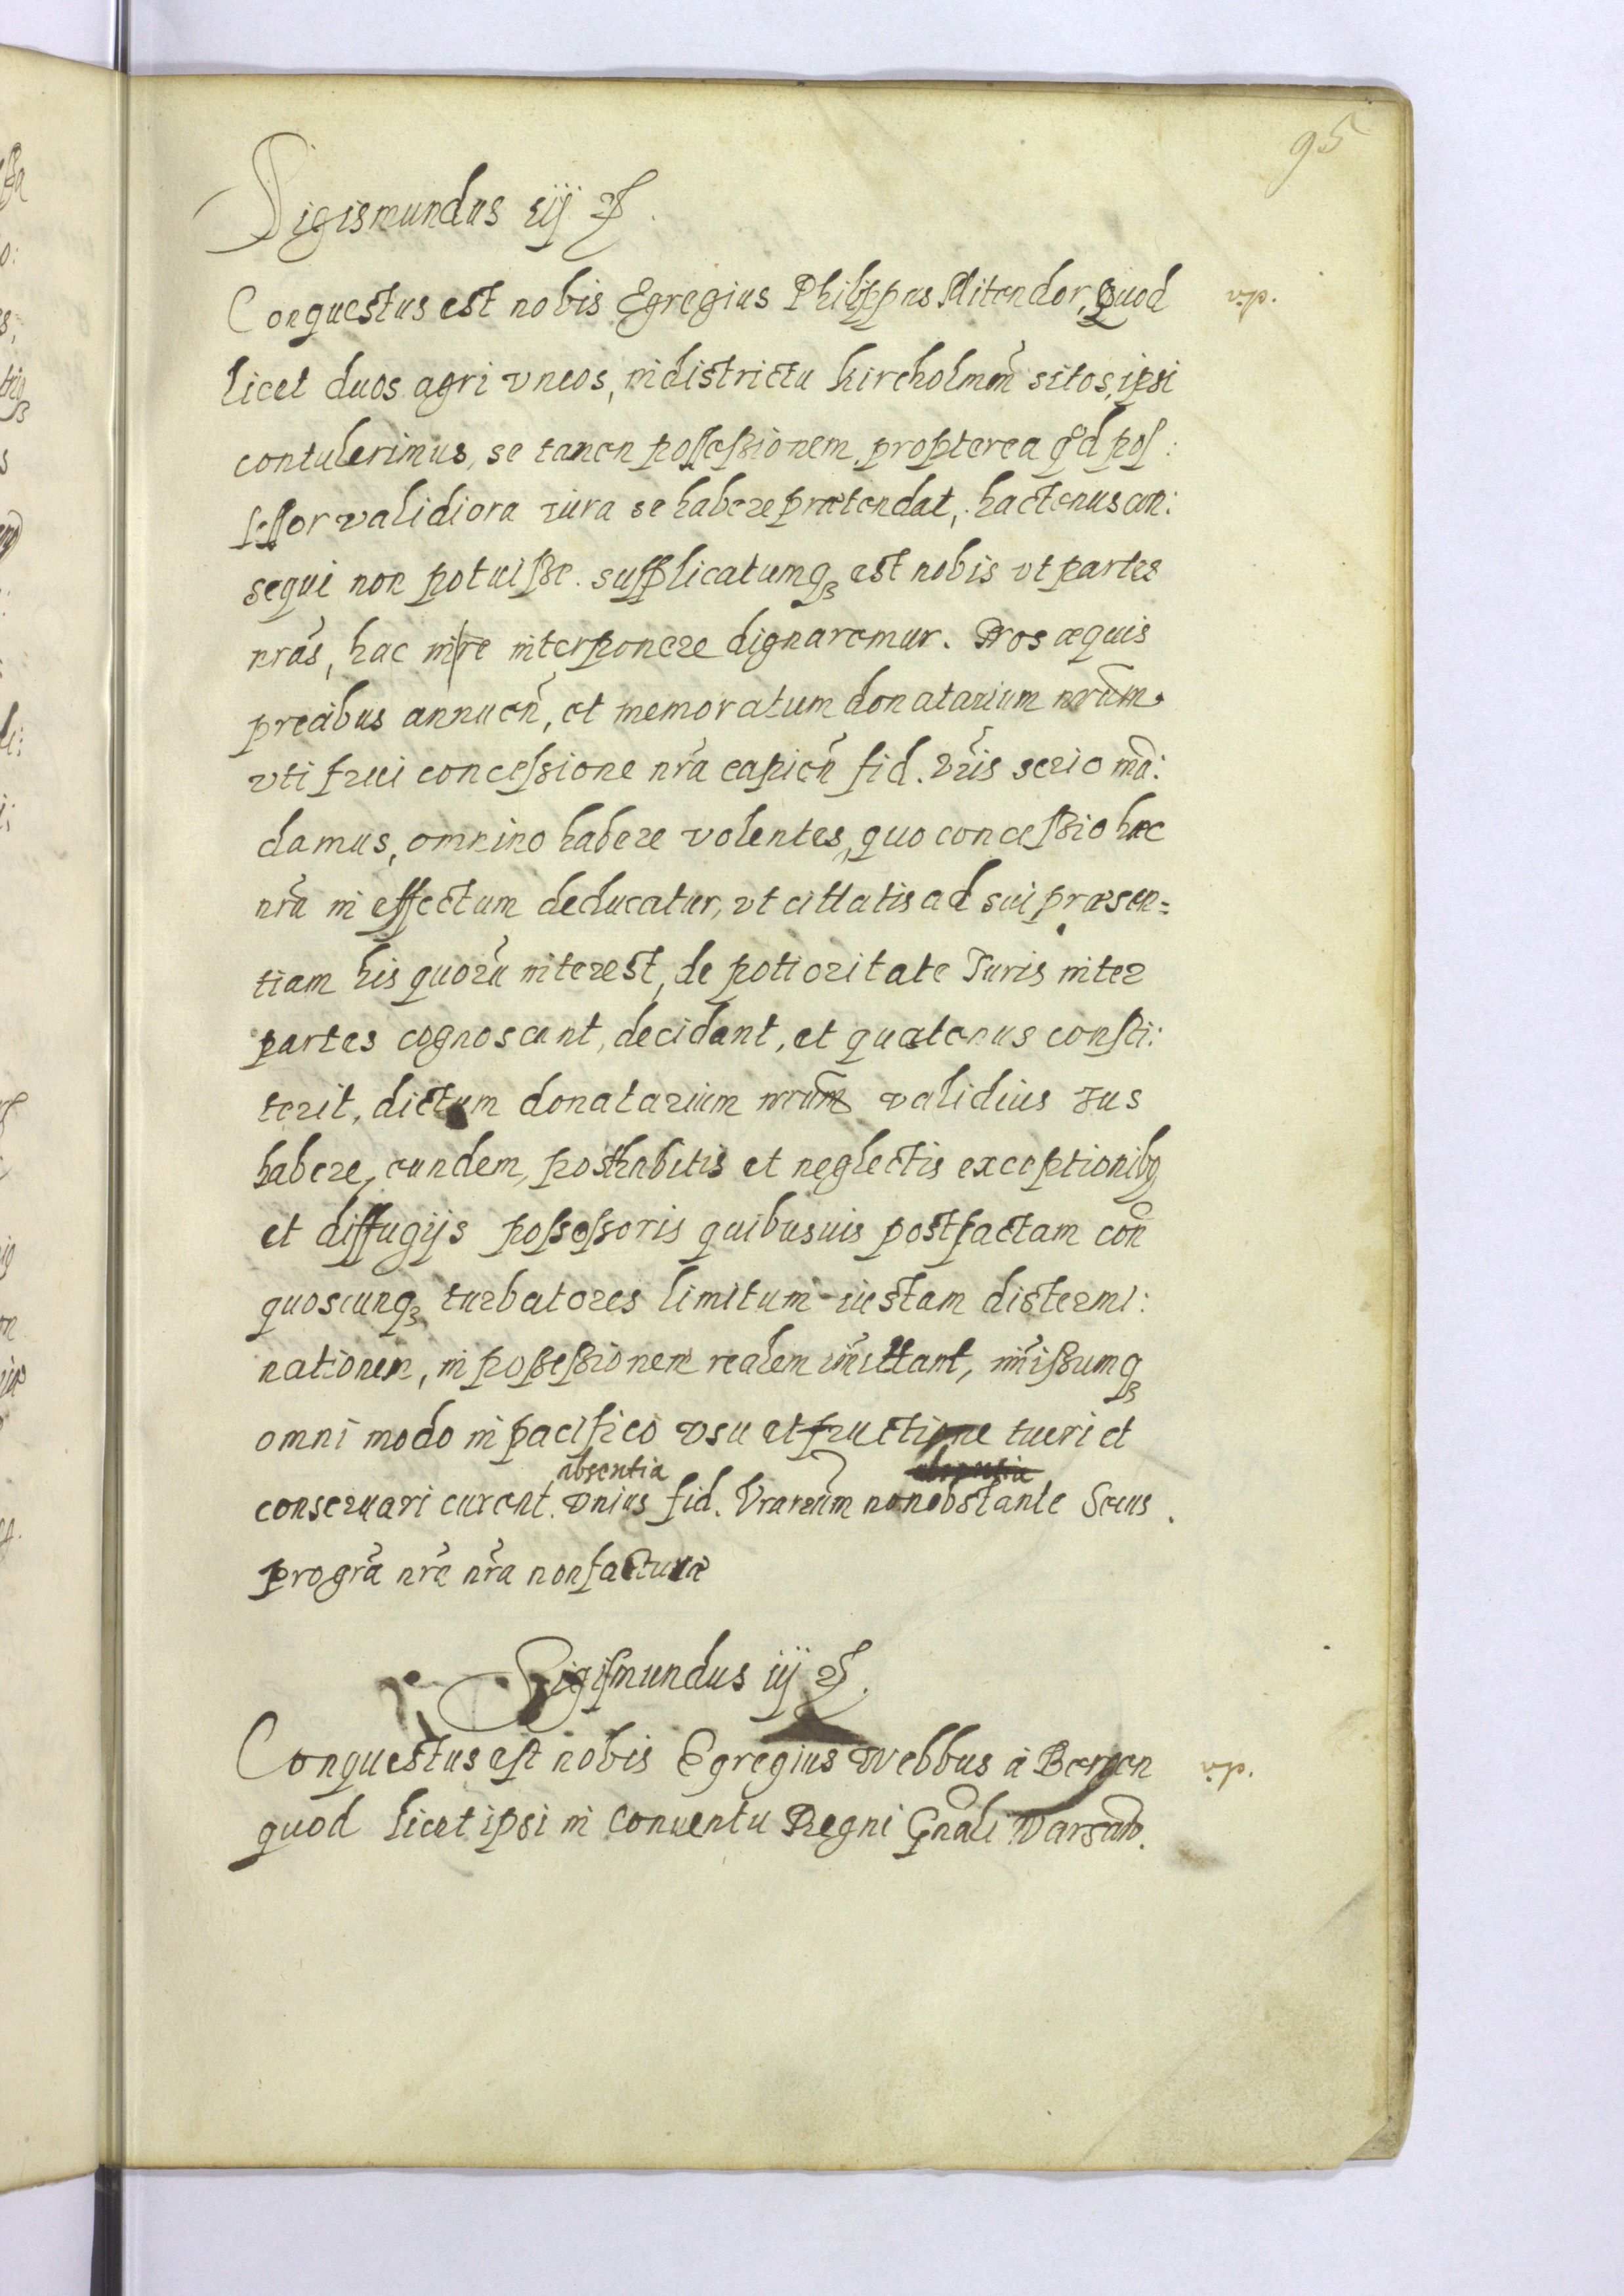 95
Sigismundus iij
Conquestus est nobis Egregius Philippus Mitendor, Quod
v.p.
licet duos agri vncos, in districtu kircholmeñ sitos, ipsi
contulerimus, se tamen possessionem propterea qd pos:
sessor validiora iura se habere prætendat, hactenus con:
sequi non potuisse. supplicatumq est nobis vt partes
nrãs, hac in re interponere dignaremur. Nos æquis
precibus annueñ, et memoratum donatarium nrũm
vti frui concessione nrã capieñ fid. Vrĩs serio mã:
damus, omnino habere volentes, quo concessio hæc
nrã in effectum deducatur, vt cittatis ad sui præsen=
tiam his quorũ interest, de potioritate Iuris inter
partes cognoscant, decidant, et quatenus consti:
terit, dictum donatarium nrũm validius ius
habere, eundem, posthabitis et neglectis exceptionibq
et diffugijs possessoris quibusuis post factam coñ
quoscunq turbatores limitum iustam distermi:
nationem, in possessionem realem im̃ittant, im̃issumq
omni modo in pacifico vsu et fructione tueri et
absentia
conseruari curent. vnius fid. Vrarũm non obstante Secus
pro grã nrã nrã non facturæ
Sigismundus iij
Conquestus est nobis Egregius Webbus à Bergen
v.p.
quod licet ipsi in Conuentu Regni Gñali Varsau.